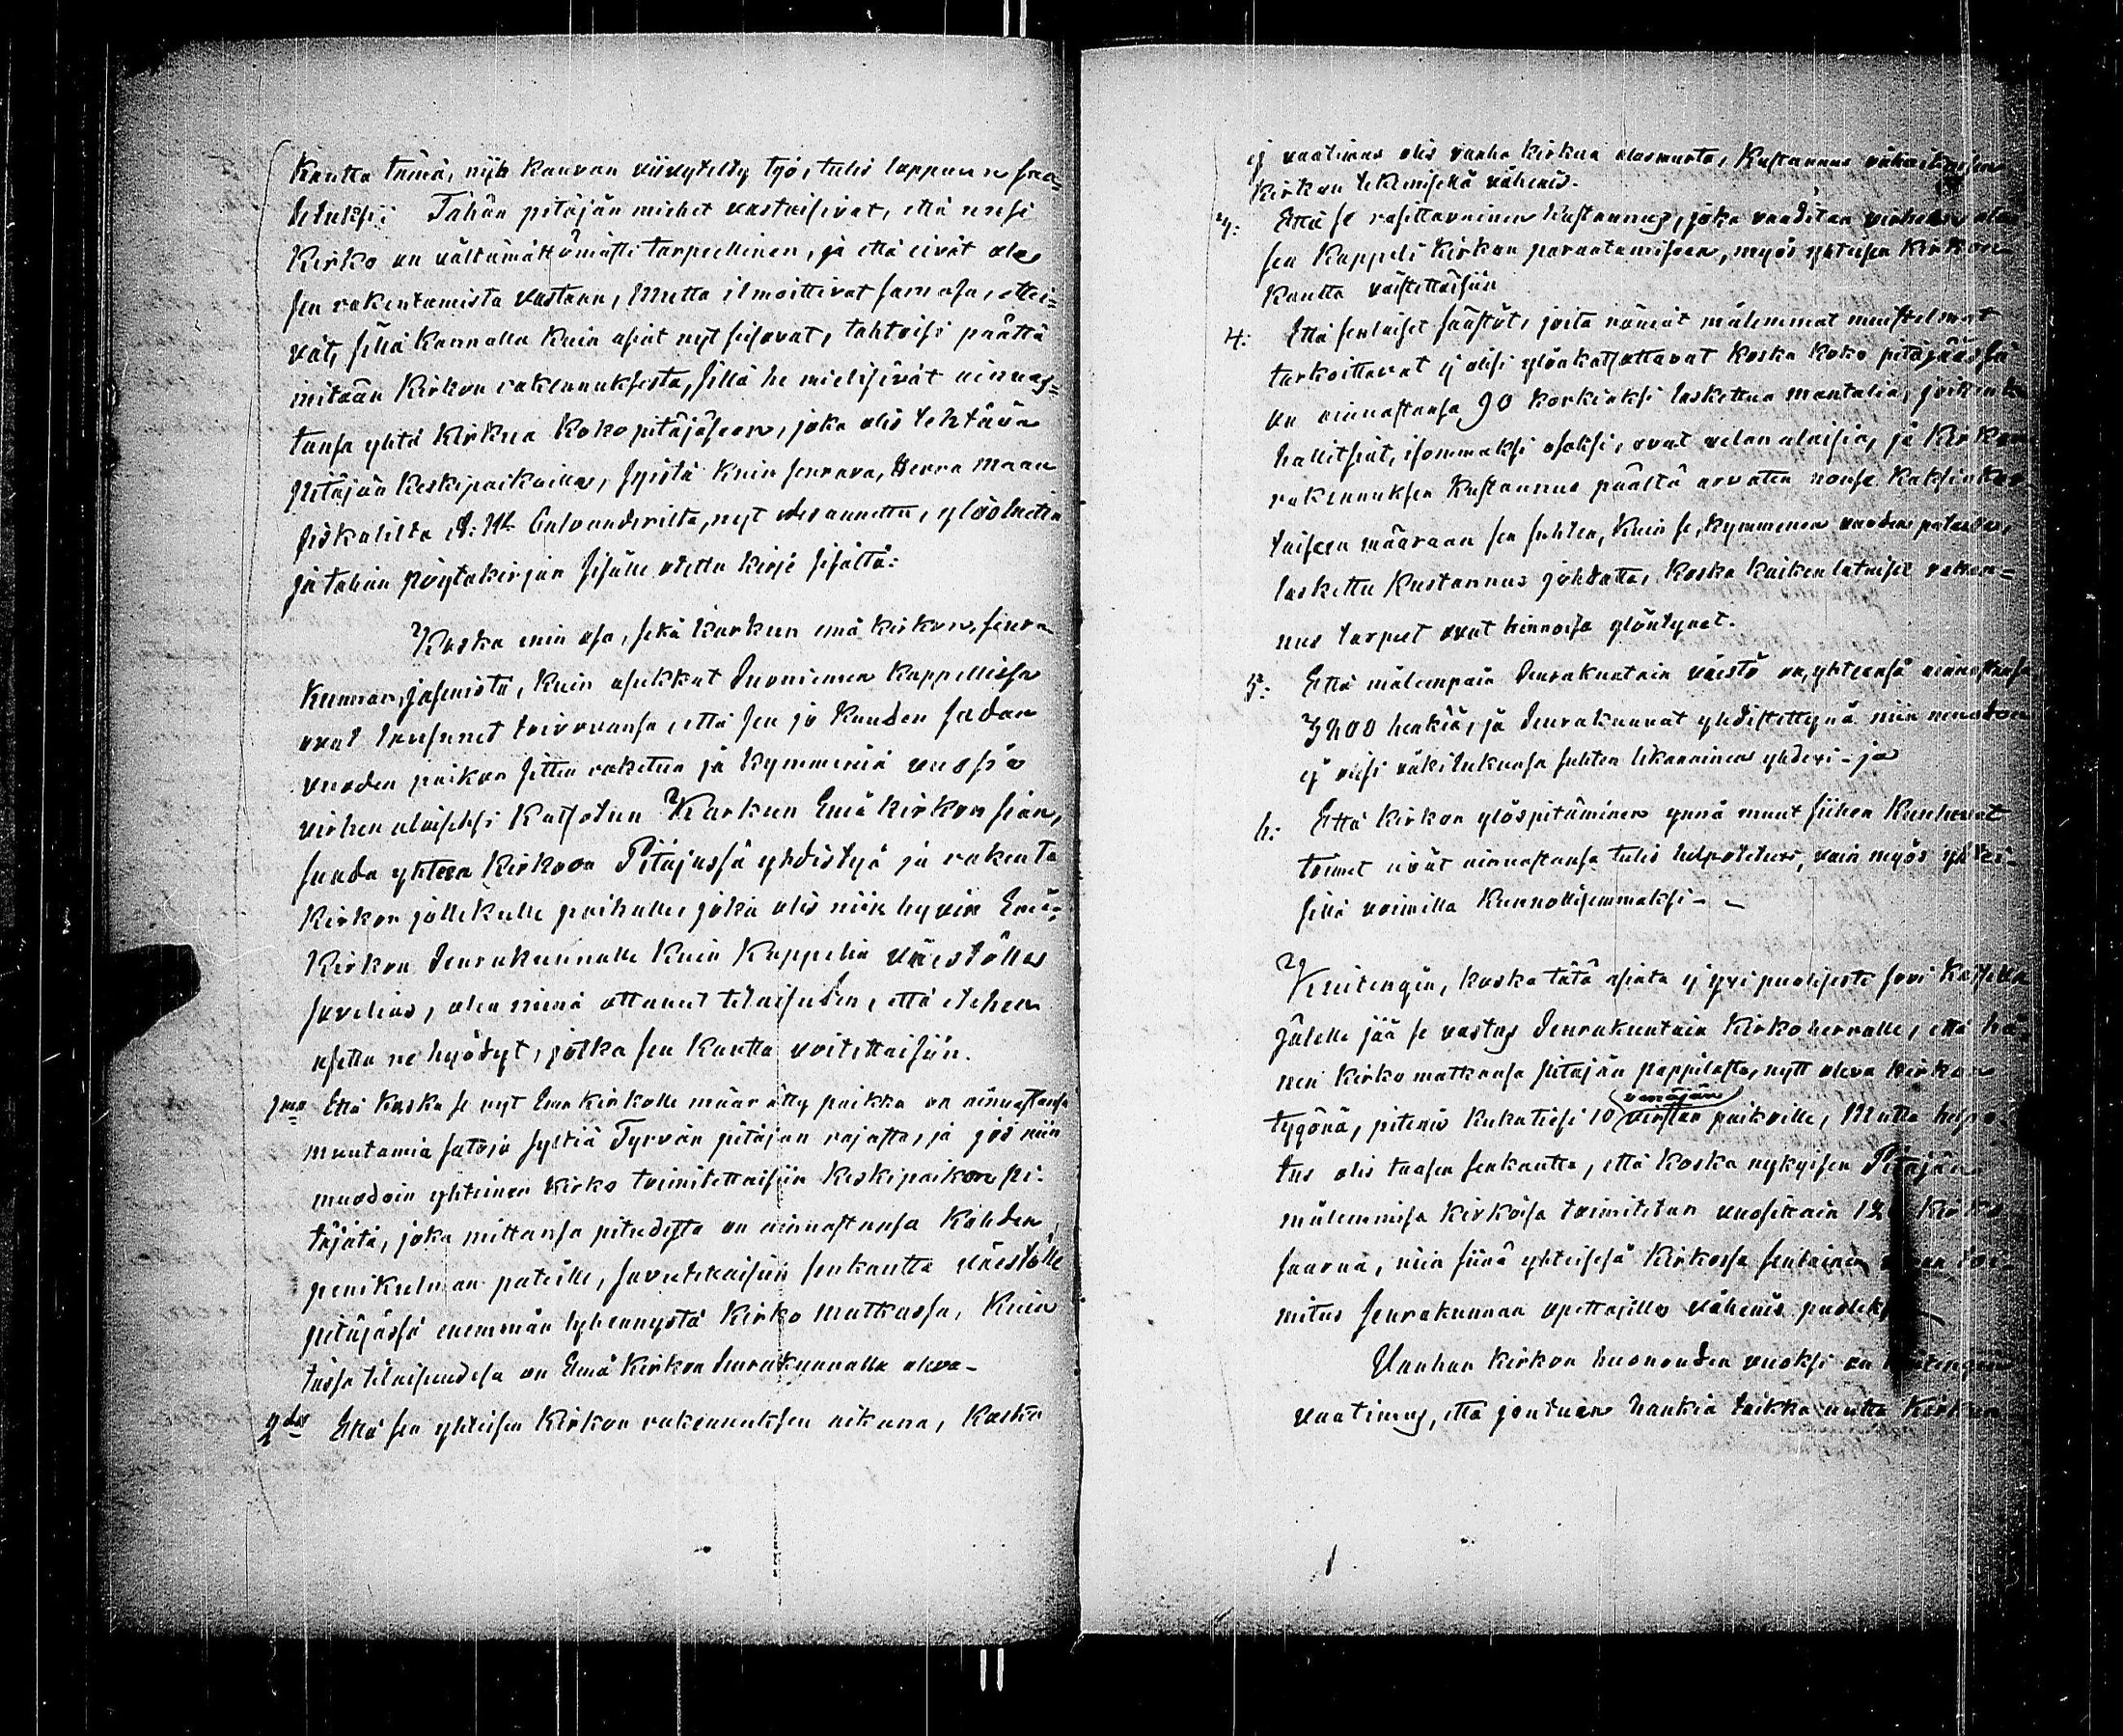 Kautta tämä, nijn kauvan viivytelty työ, tulis loppuun saa=
tetuksi: Tähän pitäjän miehet vastaisivat, että uusi
Kirko on vältämättömästi tarpeellinen, ja että eivät ole
sen rakentamista vastaan, Mutta ilmoittivat samasa, ettei=
vät, sillä kannalla kuin asiat nyt seisovat, tahtoisi päättä
mitään Kirkon rakennuksesta, sillä he mielisivät ainnas=
tansa yhtä Kirkua Koko pitäjäseen, joka olis tehtävä
Pitäjän Keskipaikoilla, syistä kuin seurava, Herra Maan
Fiskalilta nyt edesannettu, ylösluettu
ja tähän Pöytäkirjan sisälle otettu kirje sisältä:
Koska min osa, sekä Karkun emä kirkon, seura
kunnan, jäsenistä, kuin asukkat Suoniemen Kappellissa
ovat lausunet toivovansa, että sen jo kuuden sadan
vuoden paikon sitten raketun ja kymmeniä vuosia
virhen alaiseksi Katsotun Karkun Emä kirkon sian,
saada yhteen Kirkoon Pitäjässä yhdistyä ja rakenta
Kirkon jollekulle paikalle joka olis niin hyvin Emä=
Kirkon Seurakunnalle Kuin Kappelin väestölle
sovelias, olen minä ottanut tilaisuden, että etehen
asetta ne hyödyt, jotka sen kautta voitettaisiin.
1mo Että koska se nyt Emä kirkolle määrätty paikka on ainuastansa
muutamia satoja syltiä Tyrvän pitäjän rajasta, ja jos niin
muodoin yhteinen Kirko toimitettaisiin Keskipaikon pi=
täjätä, joka mittansa pitudesta on ainnastansa Kahden
penikulman pateille, savutettaisiin senkautta väestölle
pitäjässä enemmän lyhennystä Kirko matkassa, Kuin
tässä tilaisuudesa on Emä Kirkon Seurakunnalla oleva-
2do Että sen yhteisen Kirkon rakennuksen aikana, Koska
ej vaatimus olis vanha kirkua alasmurta, Kustannus
Kirkon tekemisellä vähenis.
3: Että se rasittavainen Kustannus, joka vaaditan virhen
sen Kappeli Kirkon parantamiseen, myös yhteisen Kirkon
Kautta väistettäisiin
4: Että senlaiset säästöt, joita nämät mälemmat muistelmat
tarkoittavat ej olisi ylönkatsottavat koska koko pitäjäässä
on ainnastansa 90 korkiaksi laskettua mantalia, joitenka
hallitsiat, isommaksi osaksi, ovat velan alaisia, ja Kirkon
rakennuksen Kustannus päältä arvaten nouse Kaksinker
taiseen määraan sen suhten, Kuin se, kymmenen vuoden
laskettu Kustannus johdatta, koska kaikenlataiset raken=
nus tarpeet ovat hinnoisa ylöntynet.
5: Että mälempain Seurakuntain väestö on, yhteensä ainnastansa
3200 henkiä, ja Seurakunnat yhdistettynä niin muodoin
ej olisi väkilukunsa suhten likanainen yhdexi - ja
6: Että Kirkon ylöspitäminen ynnä muut siihen Kuuluvat
toimet eivät ainnastansa tulis helpotetuxi, vain myös yhtei-
sillä voimilla Kunnollisemmaksi - -
Kuitengin, koska tätä asiata ej yxi puolisesti sovi Katsella
Jälelle jää se vastus Seurakuntain Kirkoherralle, että hä
nen Kirko matkansa Pitäjän pappilasta, nytt oleva kirkon
tygönä, piteniis kukatiesi 10 virstan paikoille, Mutta helpo
venäjän
tus olis taasen senkautta, että koska nykyisen Pitäjän
mälemmisa Kirkoisa toimitetan vuosittain Kirko
saarna, niin siinä yhteisesä Kirkossa senlainen
mitus seurakunnan opettajilla vähenis puolek
Vanhan Kirkon huonouden vuoksi on
vaatimus, että joutuin hankia taikka uutta Kirkua